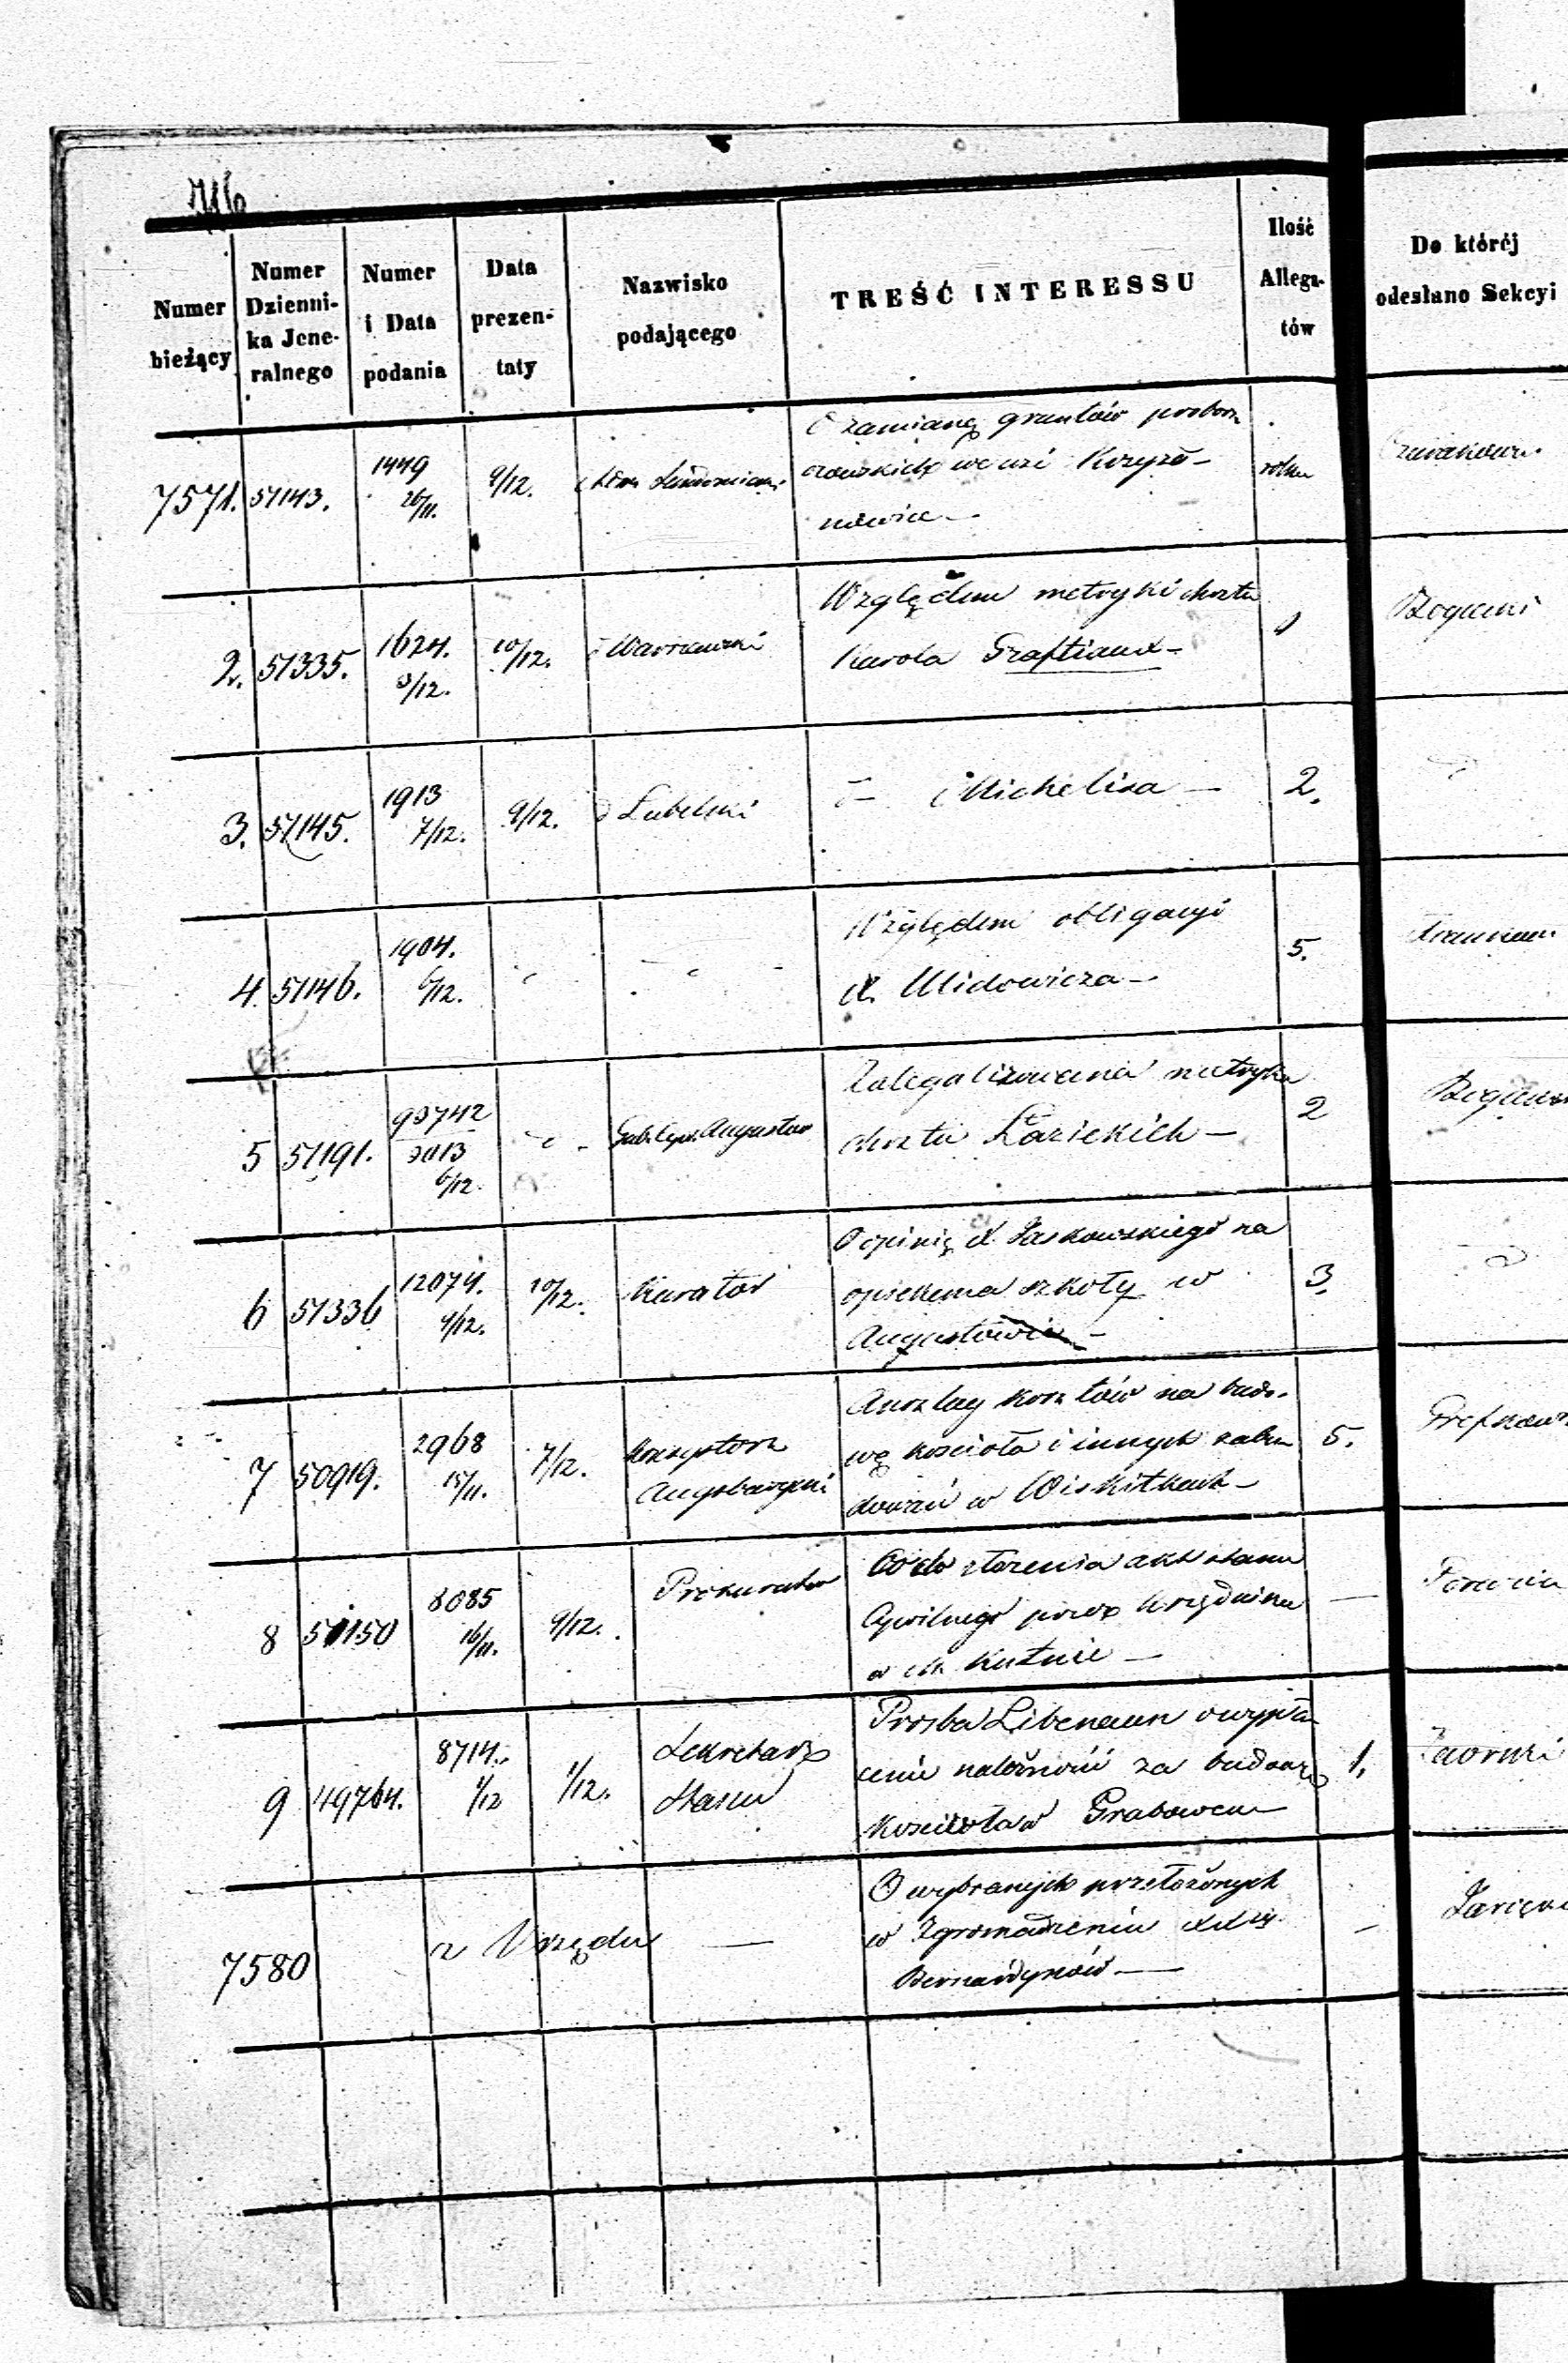 716
Numer bieżący
Numer Dzienni-
ka Jene-
ralnego
Numer i Data podania
Data prezen-
taty
Nazwisko podającego
TREŚĆ INTERESSU
Ilość Allega-
tów
Do któréj odesłano Sekcyi
7571. 51143. 1449 26/11. 9/12.
O zamianę gruntów probosz
czowskich we wsi Krzyżo-
nowice
2. 51335. 1624. 3/12. 10/12. Warszawski
Względem metryki chrztu
Karola Graftiaux -
3. 51145. 1913 7/12. 9/12. Lubelski
Michelisa - 2.
4. 51146. 1904. 6/12.
Względem obligacyi
X. Midowicza - 5.
5 51191. 90742 3013 6/12. Augustow
Zalegalizowana metryka
chrztu Łazickich - 2
6 51336 12074. 4/12. 10/12. Kurator
O opinię X. Jaskowskiego na
opiekuna szkoły w
Augustowie - 3.
7 50919. 2968 15/11. 7/12. Konsystorz
Augsburgski
Anszlag kosztów na budo-
wę kościoła i innych zabu
dowań w Wiskitkach - 5.
8 51150 8085 16/11. 9/12. Prokurator
Co do złożenia akt stanu
Cywilnego przez Urzędnika
w Kutnie -
9 49764. 8714. 1/12 1/12. Sekretarz
Stanu
Prośba Libenaun o wypła
cenie należności za budowę
Kościoła w Grabowcu 1. Zaorski
7580 z Urzędu —
O wybranych przełożonych
w Zgromadzeniu
Bernardynów —